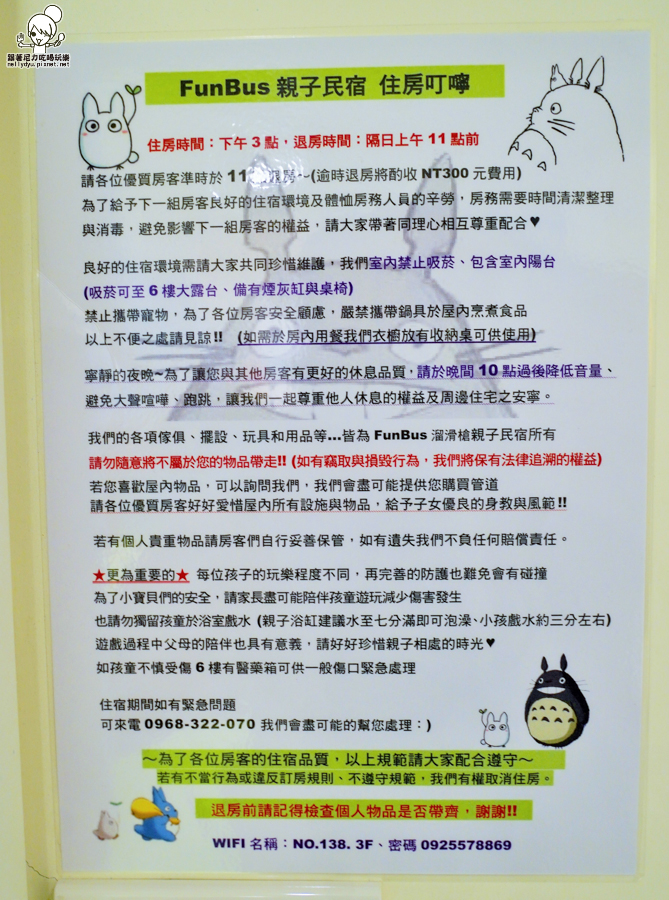 跟著尼力吃喝玩樂
nellydyu.pixnet.net
FunBus 親子民宿 住房叮嚀
住房時間：下午 3 點，退房時間：隔日上午 11 點前
請各位優質房客準時於 11 退房~(逾時退房將酌收 NT300 元費用)
為了給予下一組房客良好的住宿環境及體恤房務人員的辛勞，房務需要時間清潔整理
與消毒，避免影響下一組房客的權益，請大家帶著同理心相互尊重配合♥
良好的住宿環境需請大家共同珍惜維護，我們室內禁止吸菸、包含室內陽台
(吸菸可至 6 樓大露台、備有煙灰缸與桌椅)
禁止攜帶寵物，為了各位房客安全顧慮，嚴禁攜帶鍋具於屋內烹煮食品
以上不便之處請見諒!! (如需於房內用餐我們衣櫥放有收納桌可供使用)
寧靜的夜晚~為了讓您與其他房客有更好的休息品質，請於晚間 10 點過後降低音量、
避免大聲喧嘩、跑跳，讓我們一起尊重他人休息的權益及周邊住宅之安寧。
我們的各項傢俱、擺設、玩具和用品等...皆為 FunBus 溜滑槍親子民宿所有
請勿隨意將不屬於您的物品帶走!! (如有竊取與損毀行為，我們將保有法律追溯的權益)
若您喜歡屋內物品，可以詢問我們，我們會盡可能提供您購買管道
請各位優質房客好好愛惜屋內所有設施與物品，給予子女優良的身教與風範!!
若有個人貴重物品請房客們自行妥善保管，如有遺失我們不負任何賠償責任。
★更為重要的★ 每位孩子的玩樂程度不同，再完善的防護也難免會有碰撞
為了小寶貝們的安全，請家長盡可能陪伴孩童遊玩減少傷害發生
也請勿獨留孩童於浴室戲水 (親子浴缸建議水至七分滿即可泡澡、小孩戲水約三分左右)
遊戲過程中父母的陪伴也具有意義，請好好珍惜親子相處的時光♥
如孩童不慎受傷 6 樓有醫藥箱可供一般傷口緊急處理
住宿期間如有緊急問題
可來電 0968-322-070 我們會盡可能的幫您處理：)
～為了各位房客的住宿品質，以上規範請大家配合遵守～
若有不當行為或違反訂房規則、不遵守規範，我們有權取消住房。
退房前請記得檢查個人物品是否帶齊，謝謝!!
WIFI 名稱：NO.138. 3F、密碼 0925578869